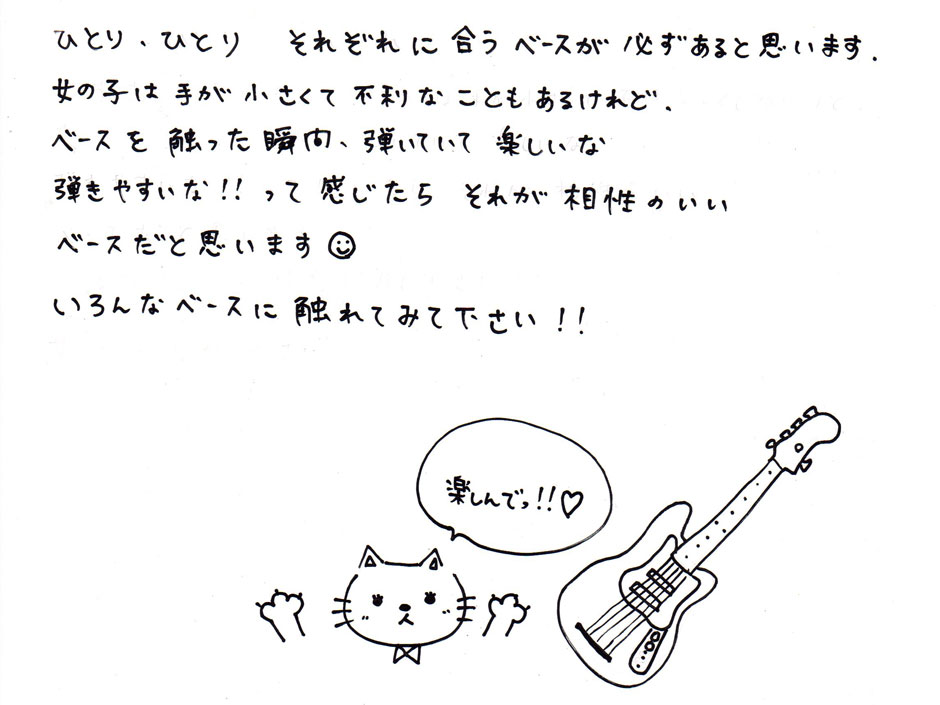 ひとり、ひとり それぞれに合うベースが必ずあると思います.
女の子は手が小さくて不利なこともあるけれど、
ベースを触った瞬間、弾いていて楽しいな
弾きやすいな!!って感じたら それが相性のいい
ベースだと思います☺
いろんなベースに触れてみて下さい!!
楽しんでっ!!♡